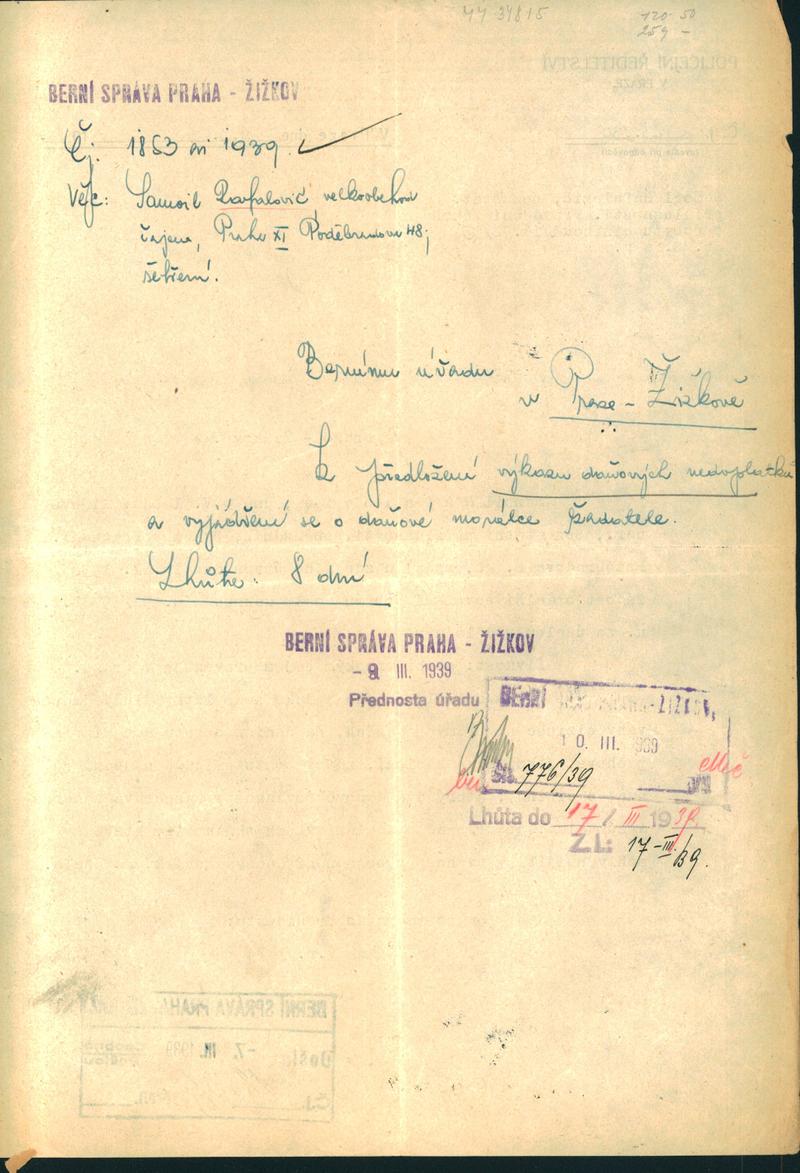 44 34815
120·50
259 -
BERNÍ SPRÁVA PRAHA - ŽIŽKOV
Čj. 1853 1939.
Věc: Samoil Rafalovič velkoobchod
čajem, Praha XI Poděbradova 48;
šetření.
Bernímu úřadu
v Praze - Žižkově
K předložení výkazu daňových nedoplatků
a vyjádření se o daňové morálce žadatele.
Lhůta: 8 dní
BERNÍ SPRÁVA PRAHA - ŽIŽKOV
- 9 III. 1939
Přednosta úřadu
BERNÍ PRAHA-ŽIŽKOV,
10. III. 1939
776/39
Lhůta do 17/ III 1939.
Z.l.: 17-III/39.
BERNÍ SPRÁVA PRAHA
Došlo -7. III. 1939
Čj.
POLICEJNÍ ŘEDITELSTVÍ
V PRAZE.